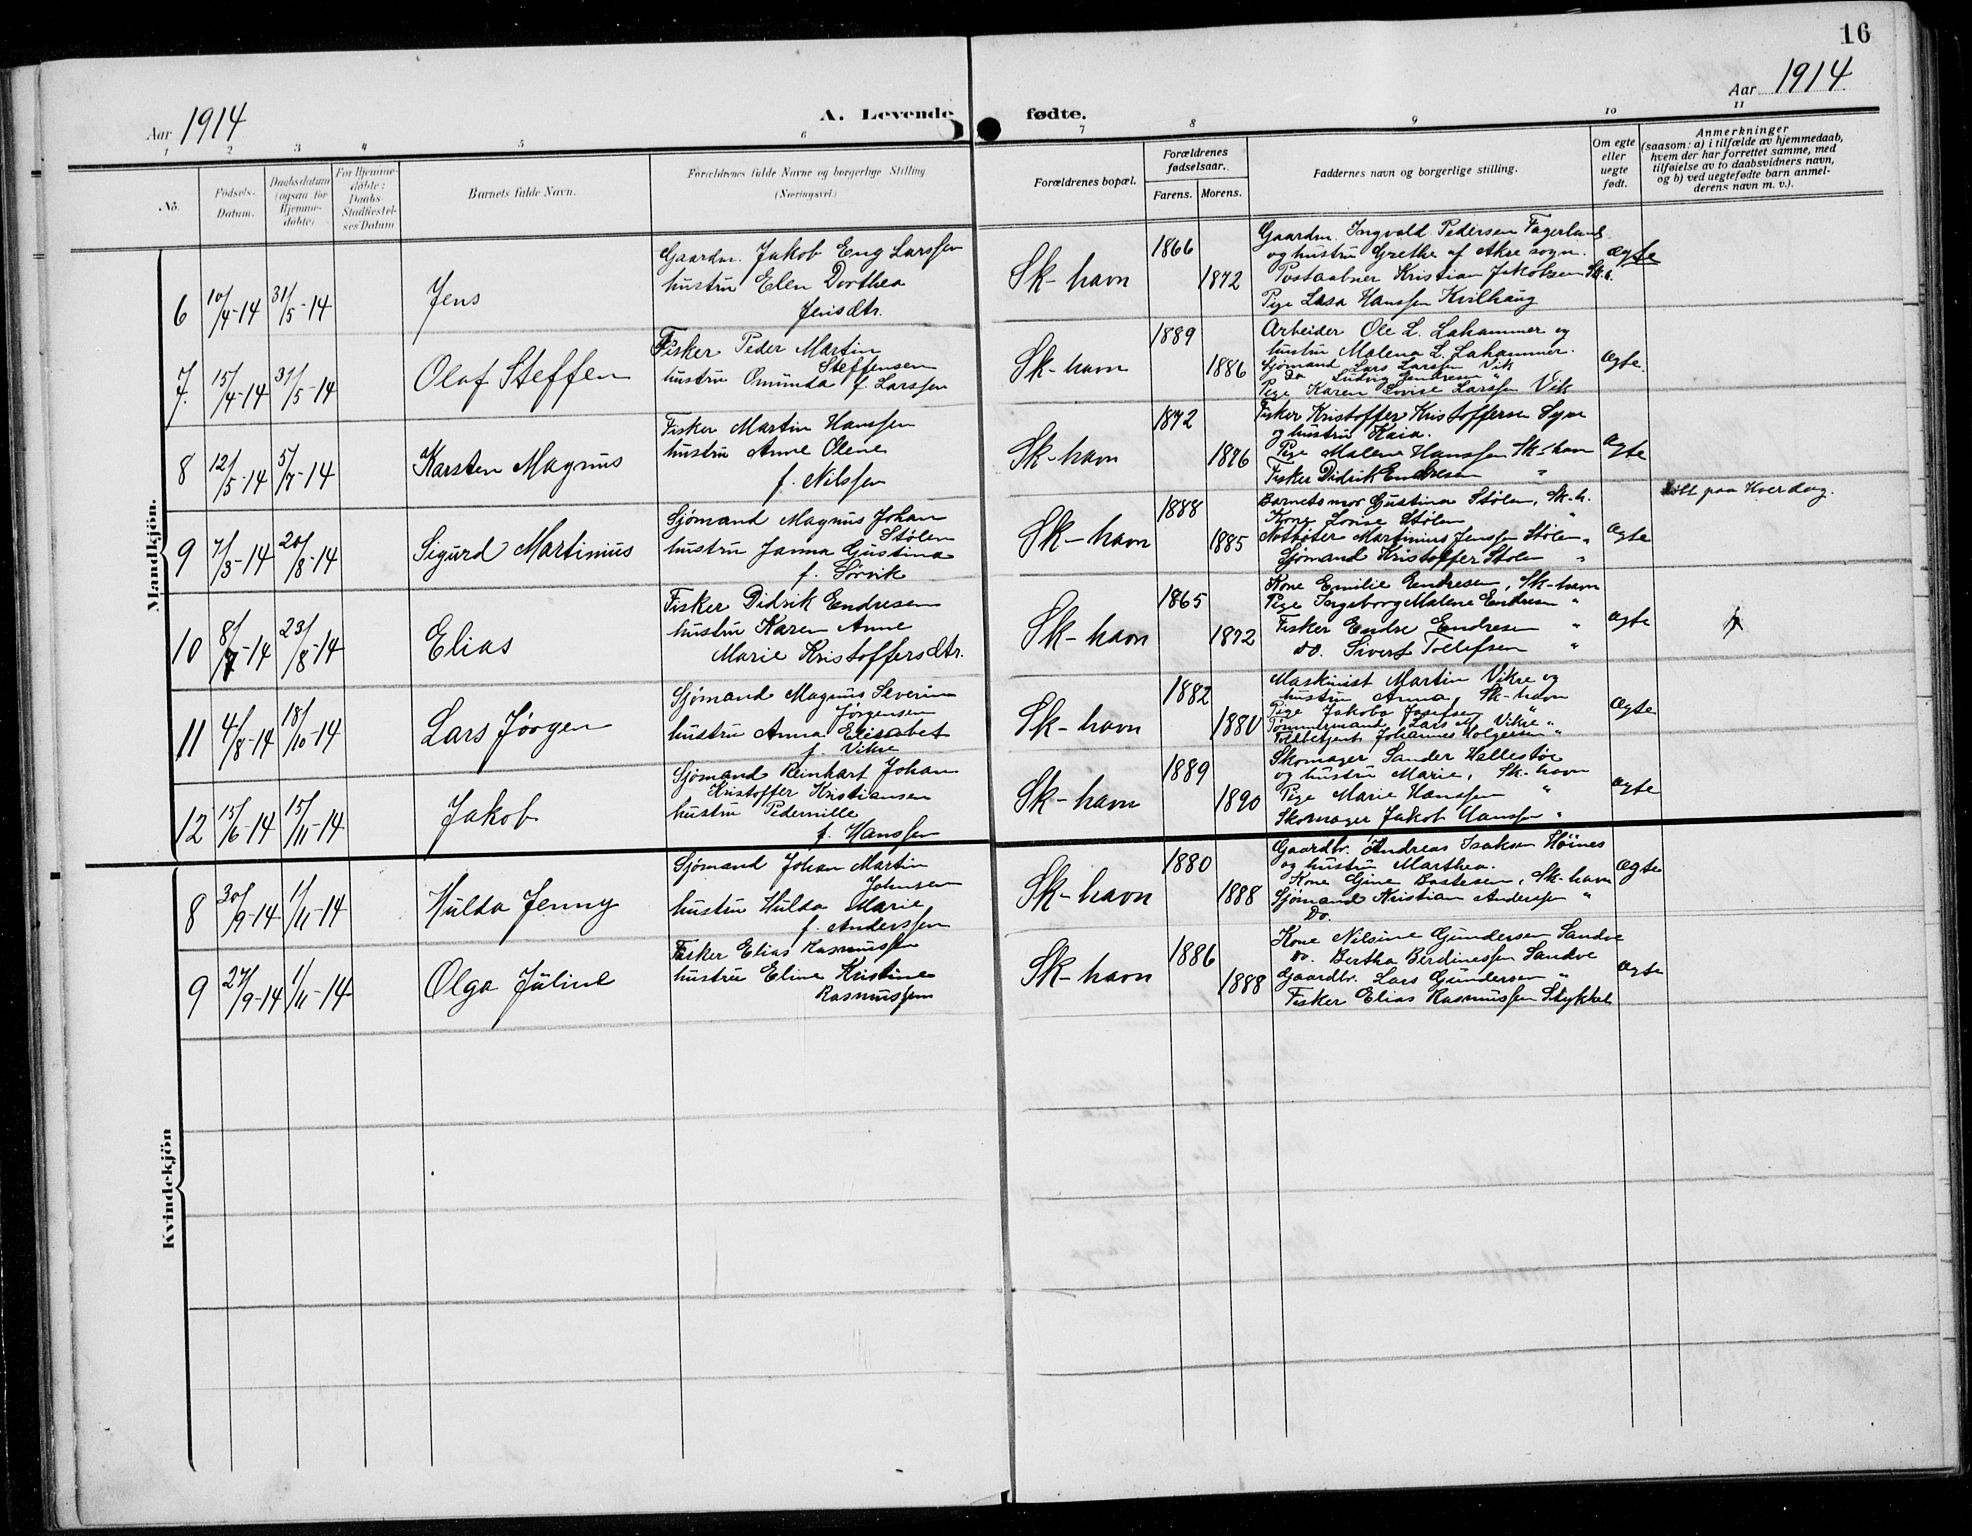 16
Aar 1914
A. Levende fødte.
Aar 1914
1 2 3 4 5 6 7 8 9 10 11
No.
Fødsels-Datum.
Daabsdatum (ogsaa for Hjemme-døbte)
For Hjemme-døbte: Daabs-Stadfæstel-ses Datum
Barnets fulde Navn.
Forældrenes fulde Navne og borgerlige Stilling (Næringsvei.)
Forældrenes bopæl.
Forældrenes fødselsaar.
Farens. Morens.
Faddernes navn og borgerlige stilling.
Om egte eller uegte født.
Anmerkninger
(saasom: a) i tilfælde av hjemmedaab,
hvem der har forrettet samme, med
tilføielse av to daabsvidners navn,
og b) ved uegtefødte barn anmel-
derens navn m. v.).
Mandkjøn.
6 10/4-14 31/5-14 Jens
Gaardm. Jakob Eng Larssen
hustru Elen Dorthea
Jensdtr.
Sk-havn 1866 1872
Gaardm. Ingvald Pedersen Fagerland
og hustru Grethe af Akre sogn.
Postaabner Kristian Jakobsen Sk.h.
Pige Lasa Hanssen Kvilhaug
ægte
7. 15/4-14 31/5-14 Olaf Steffen
Fisker Peder Martin
Steffensen
hustru Omunda f. Larssen
Sk-havn 1889 1886
Arbeider Ole L. Lahammer og
hustru Malena L. Lahammer.
Sjømand Lars Larssen Vik
Do Ludvig Endresen "
Pige Karen Lovise Larssen Vik
ægte.
8 12/5-14 5/7-14 Karsten Magnus
Fisker Martin Hanssen
hustru Anne Olene
f. Nilssen
Sk-havn 1872 1876
Fisker Kristoffer Kristoffersen Syre
og hustru Kaia.
Pige Malene Hanssen Sk-havn
Fisker Didrik Endresen "
ægte
9 7/3-14 20/8-14 Sigurd Martinius
Sjømand Magnus Johan
Stølen
hustru Janna Gustina
f. Sørvik
Sk-havn 1888 1885
Barnets mor Gustina Stølen, Sk-h.
Kone Lovise Stølen "
Notbøter Martinius Jenssen Stølen "
Sjømand Kristoffer Stølen "
ægte
paa Hverdag.
10 8/7-14 23/8-14 Elias
Fisker Didrik Endresen
hustru Karen Anne
Marie Kristoffersdtr.
Sk-havn 1865 1872
Kone Emilie Endresen, Sk-havn
Pige Ingeborg Malene Endresen "
Fisker Endre Endresen "
do. Sivert Tollefsen "
ægte
11 4/8-14 18/10-14 Lars Jørgen
Sjømand Magnus Severin
Jørgensen
hustru Anna Elisabet
f. Vikre
Sk-havn 1882 1880
Maskinist Martin Vikre og
hustru Anna, Sk-havn
Pige Jakoba Josefsen "
Tømmermand Lars M. Vikre "
Toldbetjent Johannes Holgersen "
ægte
12 15/6-14 15/11-14 Jakob
Sjømand Reinhart Johan
Kristoffer Kristiansen
hustru Pedernille
f. Hanssen
Sk-havn 1889 1890
Skomager Sander Hellestøe
og hustru Marie, Sk-havn
Pige Marie Hanssen "
Skomager Jakob Hanssen "
ægte
Kvindekjøn
8 30/9-14 1/11-14 Hulda Jenny
Sjømand Johan Martin
Johnsen
hustru Hulda Marie
f. Anderssen
Sk-havn 1880 1888
Gaardbr. Andreas Isaksen Høines
og hustru Marthea.
Kone Gine Bastesen, Sk-havn
Sjømand Kristian Anderssen "
Do.
ægte
9 27/9-14 1/11-14 Olga Juline
Fisker Elias Rasmussen
hustru Eline Kristine
Rasmussen
Sk-havn 1886 1888
Kone Nilsine Gundersen Sandve
do. Bertha Berdinessen Sandve
Gaardbr. Lars Gundersen "
Fisker Elias Rasmussen Stykket
ægte